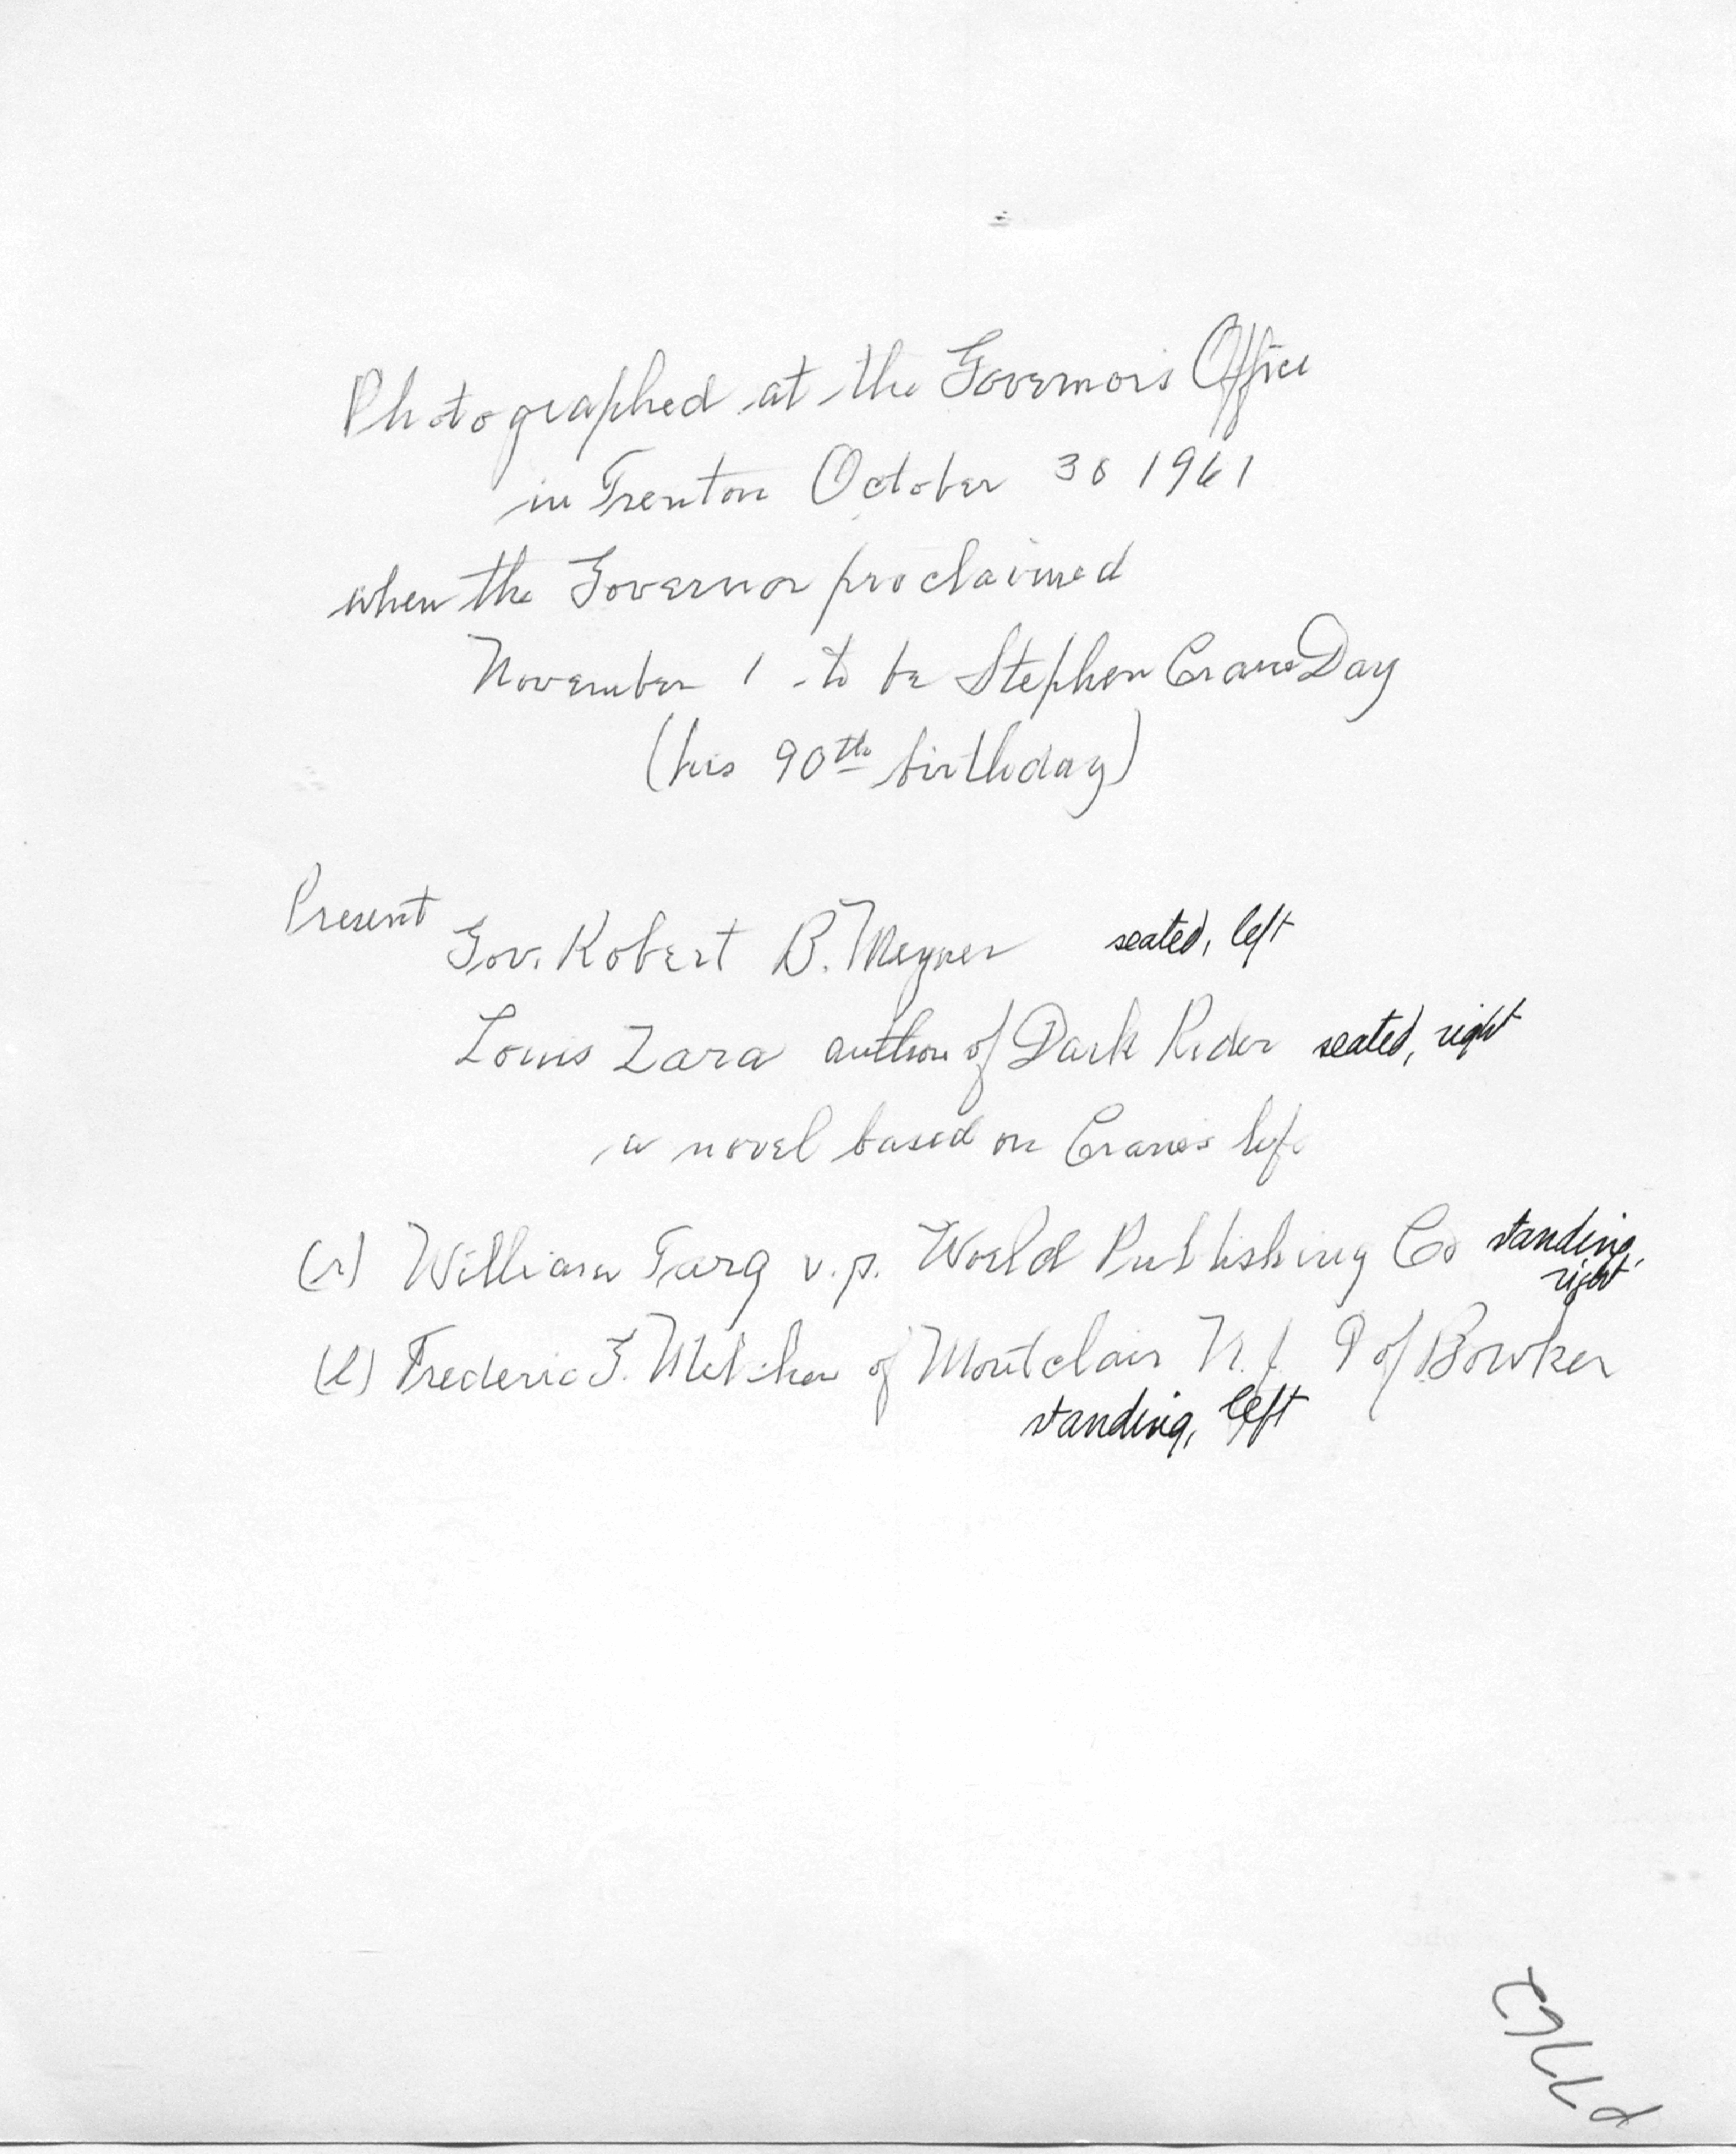 Photographed at the Governors Office
in Trenton October 30 1961
when the Governor proclaimed
November 1 to be Stephen Crane Day
(his 90th birthday)
Present
Gov. Robert B. Meyner seated, left
Louis Zara author of Dark Rider seated, right
a novel based on Crane's life
(r) William Targ v.p. World Publishing Co standing,
right
(l) Frederic G. Melcher of Montclair N.J. P of Bowker
standing, left